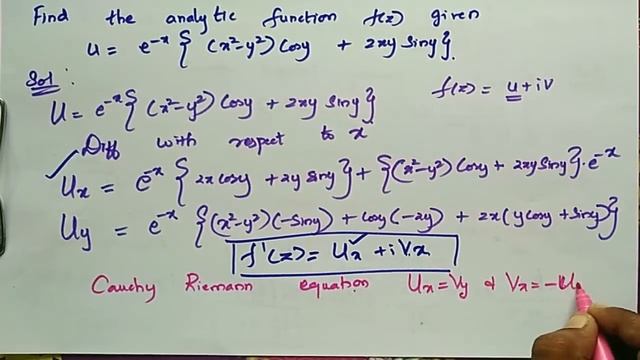 Find the analytic function f(z) given
u = e^-x { (x²-y²) cosy + 2xy siny }.
Sol :
u = e^-x { (x²-y²) cosy + 2xy siny }
f(z) = u + iv
Diff with respect to x
Ux = e^-x { 2x cosy + 2y siny } + { (x²-y²) cosy + 2xy siny } · e^-x
Uy = e^-x { (x²-y²) (-siny) + cosy (-2y) + 2x (y cosy + siny) }
f'(z) = Ux + i Vx
Cauchy Riemann equation Ux = Vy & Vx = -U